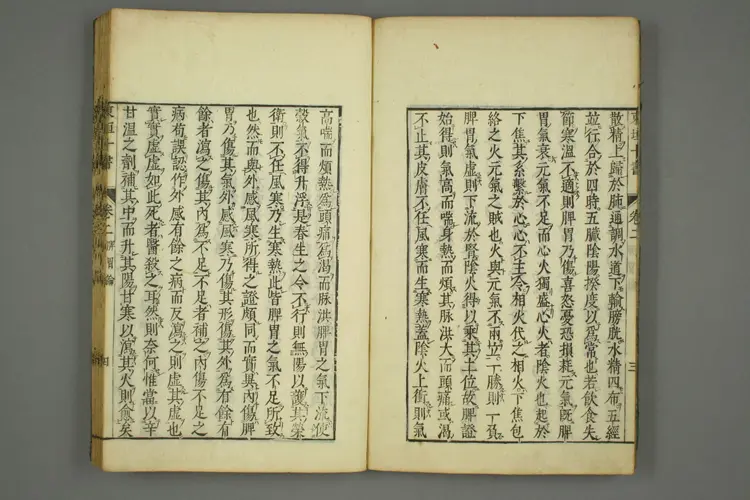 東垣十書
卷二
三
散精上歸於肺通調水道下輸膀胱水精四布五經
並行合於四時五臟陰陽揆度以爲常也若飲食失
節寒溫不適則脾胃乃傷喜怒憂恐損耗元氣旣脾
胃氣衰元氣不足而心火獨盛心火者陰火也起於
下焦其系繫於心心不主令相火代之相火下焦包
絡之火元氣之賊也火與元氣不兩立一勝則一負
脾胃氣虛則下流於腎陰火得以乘其土位故脾證
始得則氣高而喘身熱而煩其脉洪大而頭痛或渴
不止其皮膚不任風寒而生寒熱蓋陰火上衝則氣
高喘而煩熱爲頭痛爲渴而脉洪脾胃之氣下流使
穀氣不得升浮是春生之令不行則無陽以護其榮
衛則不任風寒乃生寒熱此皆脾胃之氣不足所致
也然而與外感風寒所得之證頗同而實異內傷脾
胃乃傷其氣外感風寒乃傷其形傷其外爲有餘有
餘者瀉之傷其內爲不足不足者補之內傷不足之
病苟誤認作外感有餘之病而反瀉之則虛其虛也
實實虛虛如此死者醫殺之耳然則奈何惟當以辛
甘溫之劑補其中而升其陽甘寒以瀉其火則愈矣
東垣十書
卷二 脾胃論
四